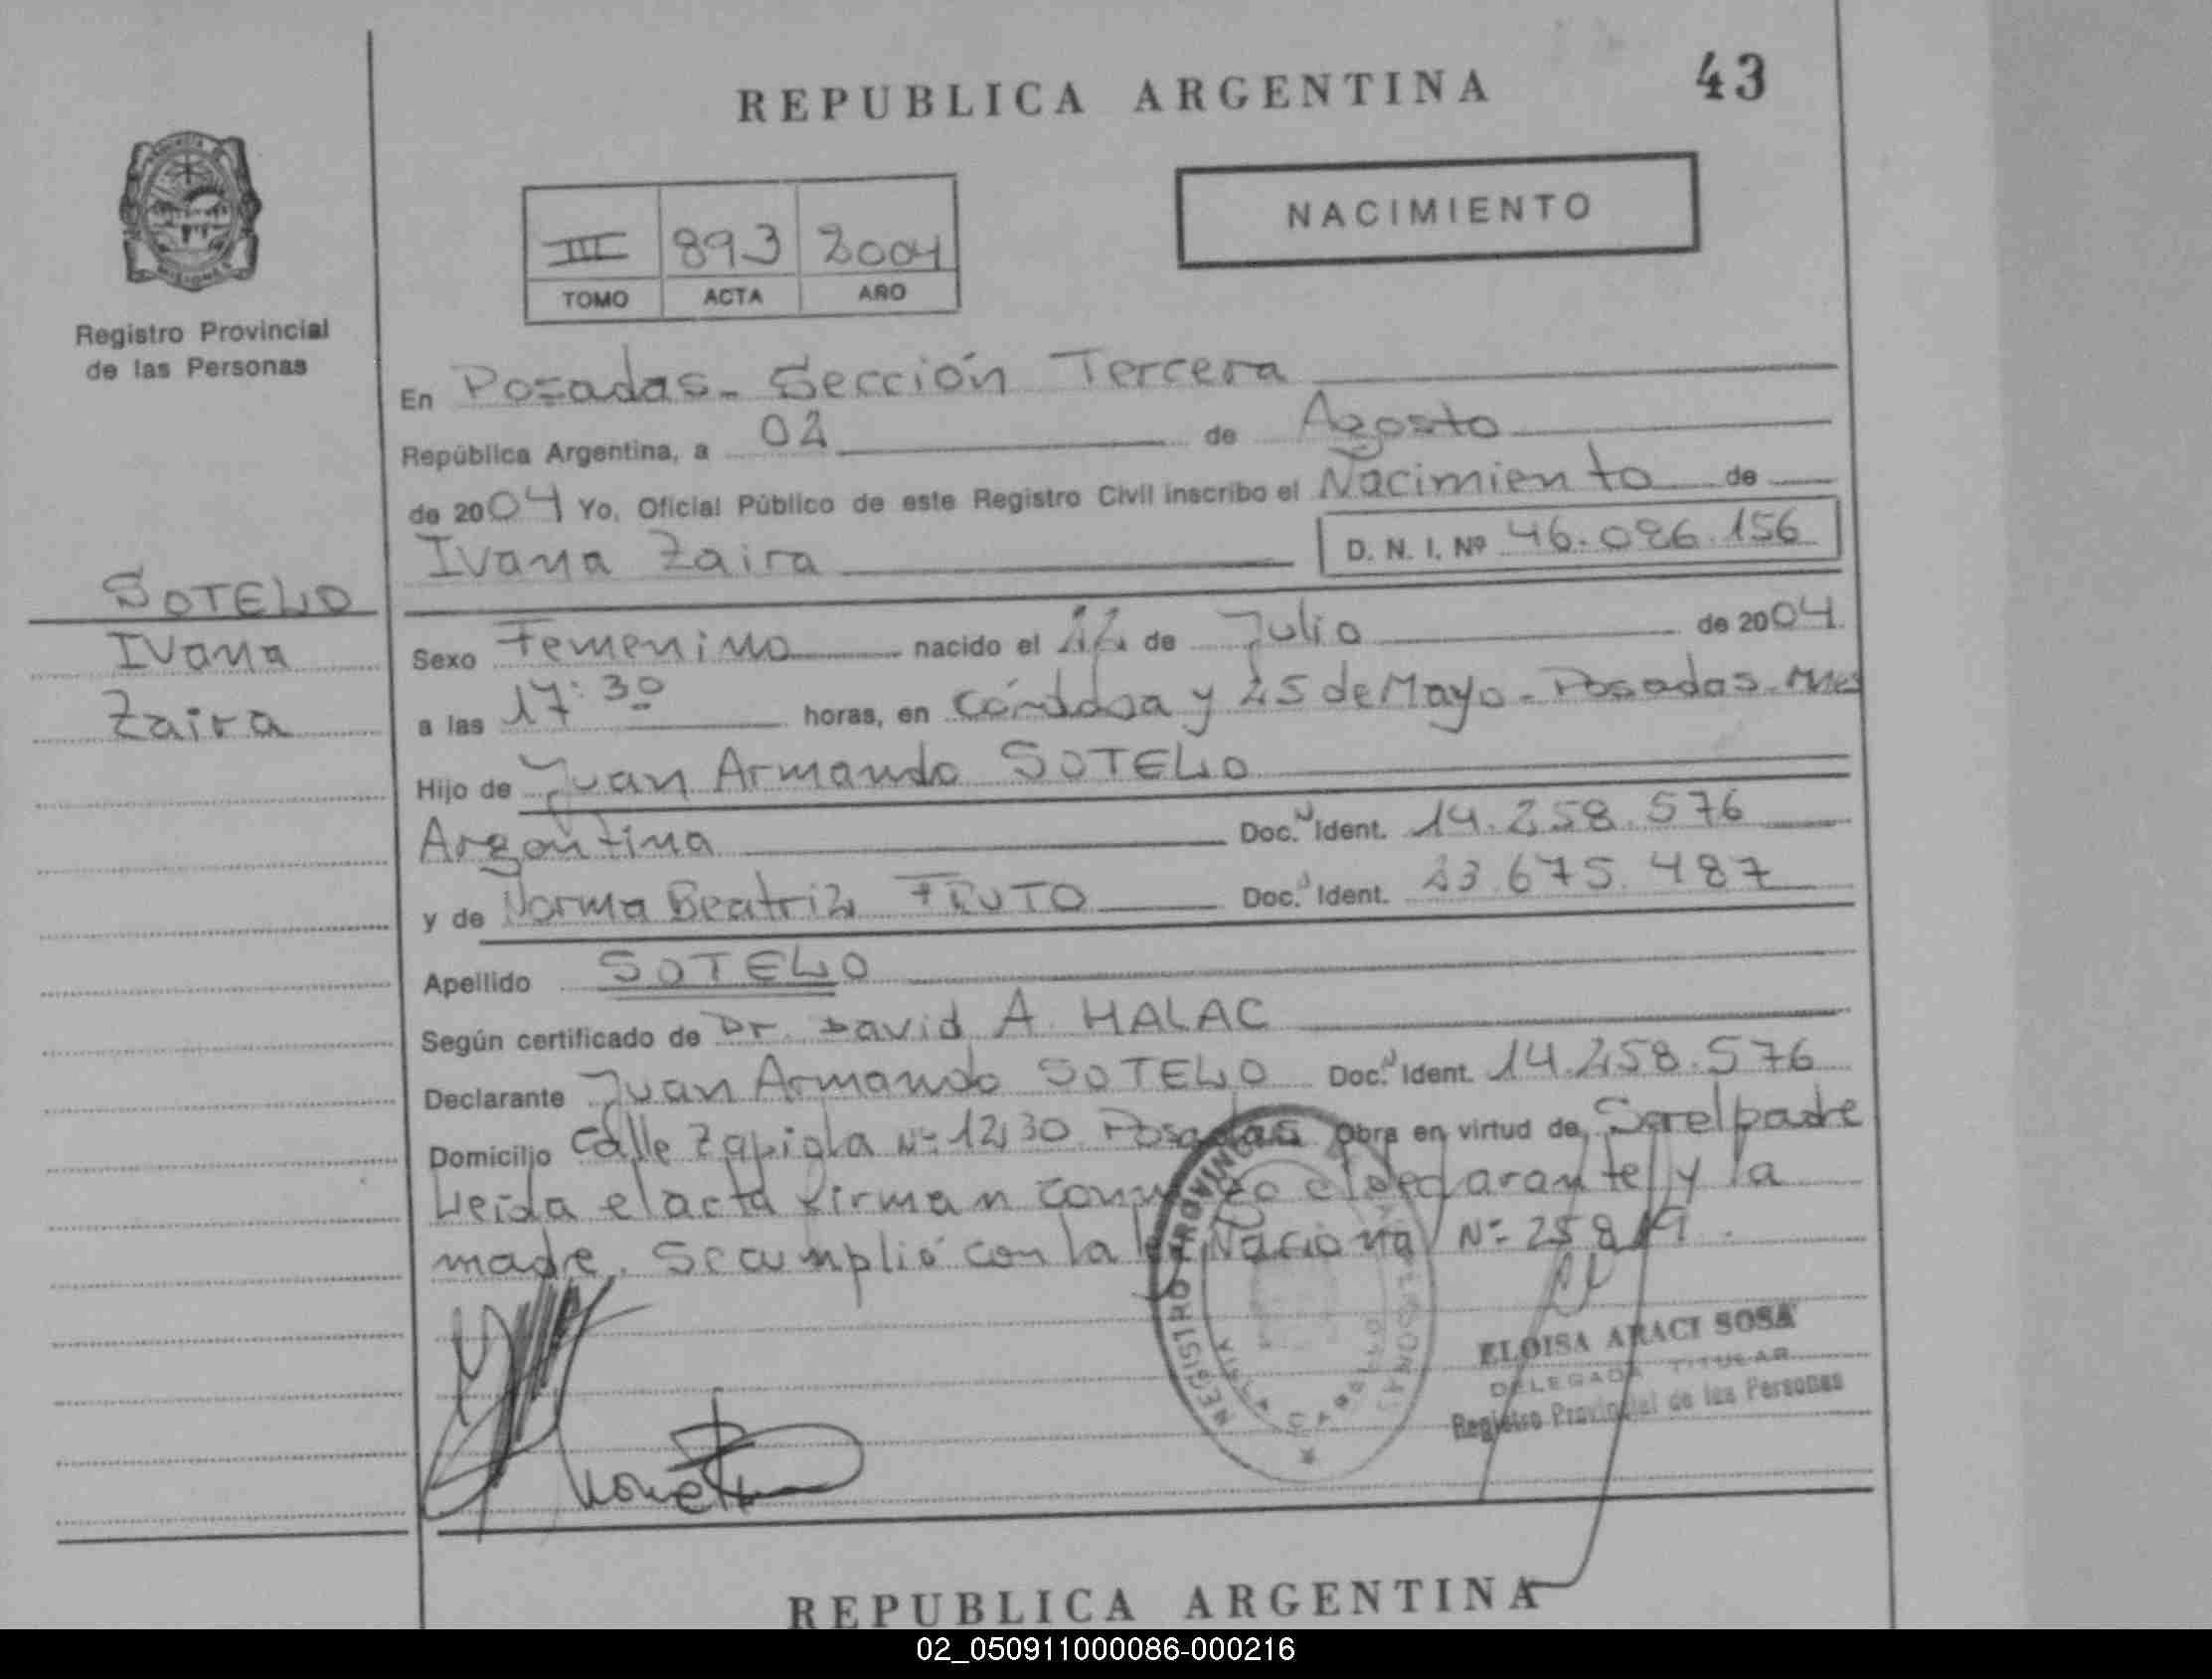 REPUBLICA ARGENTINA
43
NACIMIENTO
III 893 2004
TOMO ACTA AÑO
Registro Provincial
de las Personas
En Posadas - Sección Tercera
República Argentina, a 02 de Agosto
de 2004 Yo, Oficial Público de este Registro Civil inscribo el Nacimiento de
Ivana Zaira D. N. I. Nº 46.026.156
SOTELO
Ivana
Zaira
Sexo Femenino nacido el 22 de Julio de 2004
a las 17:30 horas, en Córdoba y 25 de Mayo - Posadas - Mnes
Hijo de Juan Armando SOTELO
Argentina Doc. Ident. 14.258.576
y de Norma Beatriz FRUTO Doc. Ident. 23.675.487
Apellido SOTELO
Según certificado de Dr. David A. HALAC
Declarante Juan Armando SOTELO Doc. Ident. 14.258.576
Domicilio Calle Zapiola Nº 1230 Posadas Obra en virtud de Ser el padre
Leida el acta firman conmigo el declarante y la
madre. Se cumplió con la Nacional Nº 25819.
REGISTRO PROVINCIAL
ELOISA ARACI SOSA
DELEGADA TITULAR
Registro Provincial de las Personas
REPUBLICA ARGENTINA
02_050911000086-000216